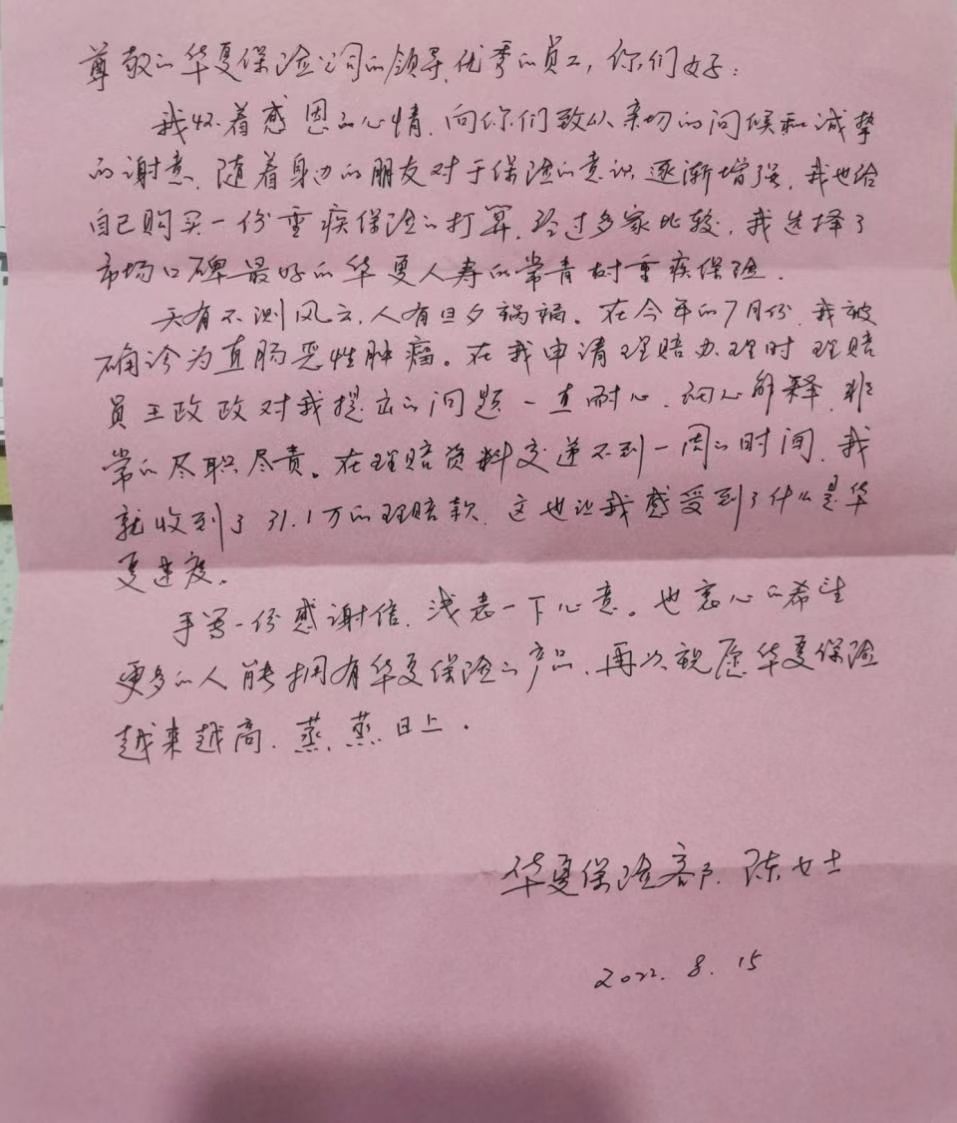 尊敬的华夏保险公司的领导、优秀的员工,你们好:
我怀着感恩的心情,向你们致以亲切的问候和诚挚
的谢意,随着身边的朋友对于保险的意识逐渐增强,我也给
自己购买一份重疾保险的打算,经过多家比较,我选择了
市场口碑最好的华夏人寿的常青树重疾保险.
天有不测风云,人有旦夕祸福。在今年的7月份,我被
确诊为直肠恶性肿瘤。在我申请理赔办理时理赔
员王政政对我提出的问题一直耐心、细心解释,非
常的尽职尽责。在理赔资料交递不到一周的时间,我
就收到了31.1万的理赔款,这也让我感受到了什么是华
夏速度。
手写一份感谢信,浅表一下心意。也衷心的希望
更多的人能拥有华夏保险的产品,再次祝愿华夏保险
越来越高、蒸蒸日上.
华夏保险客户、陈女士
2022.8.15